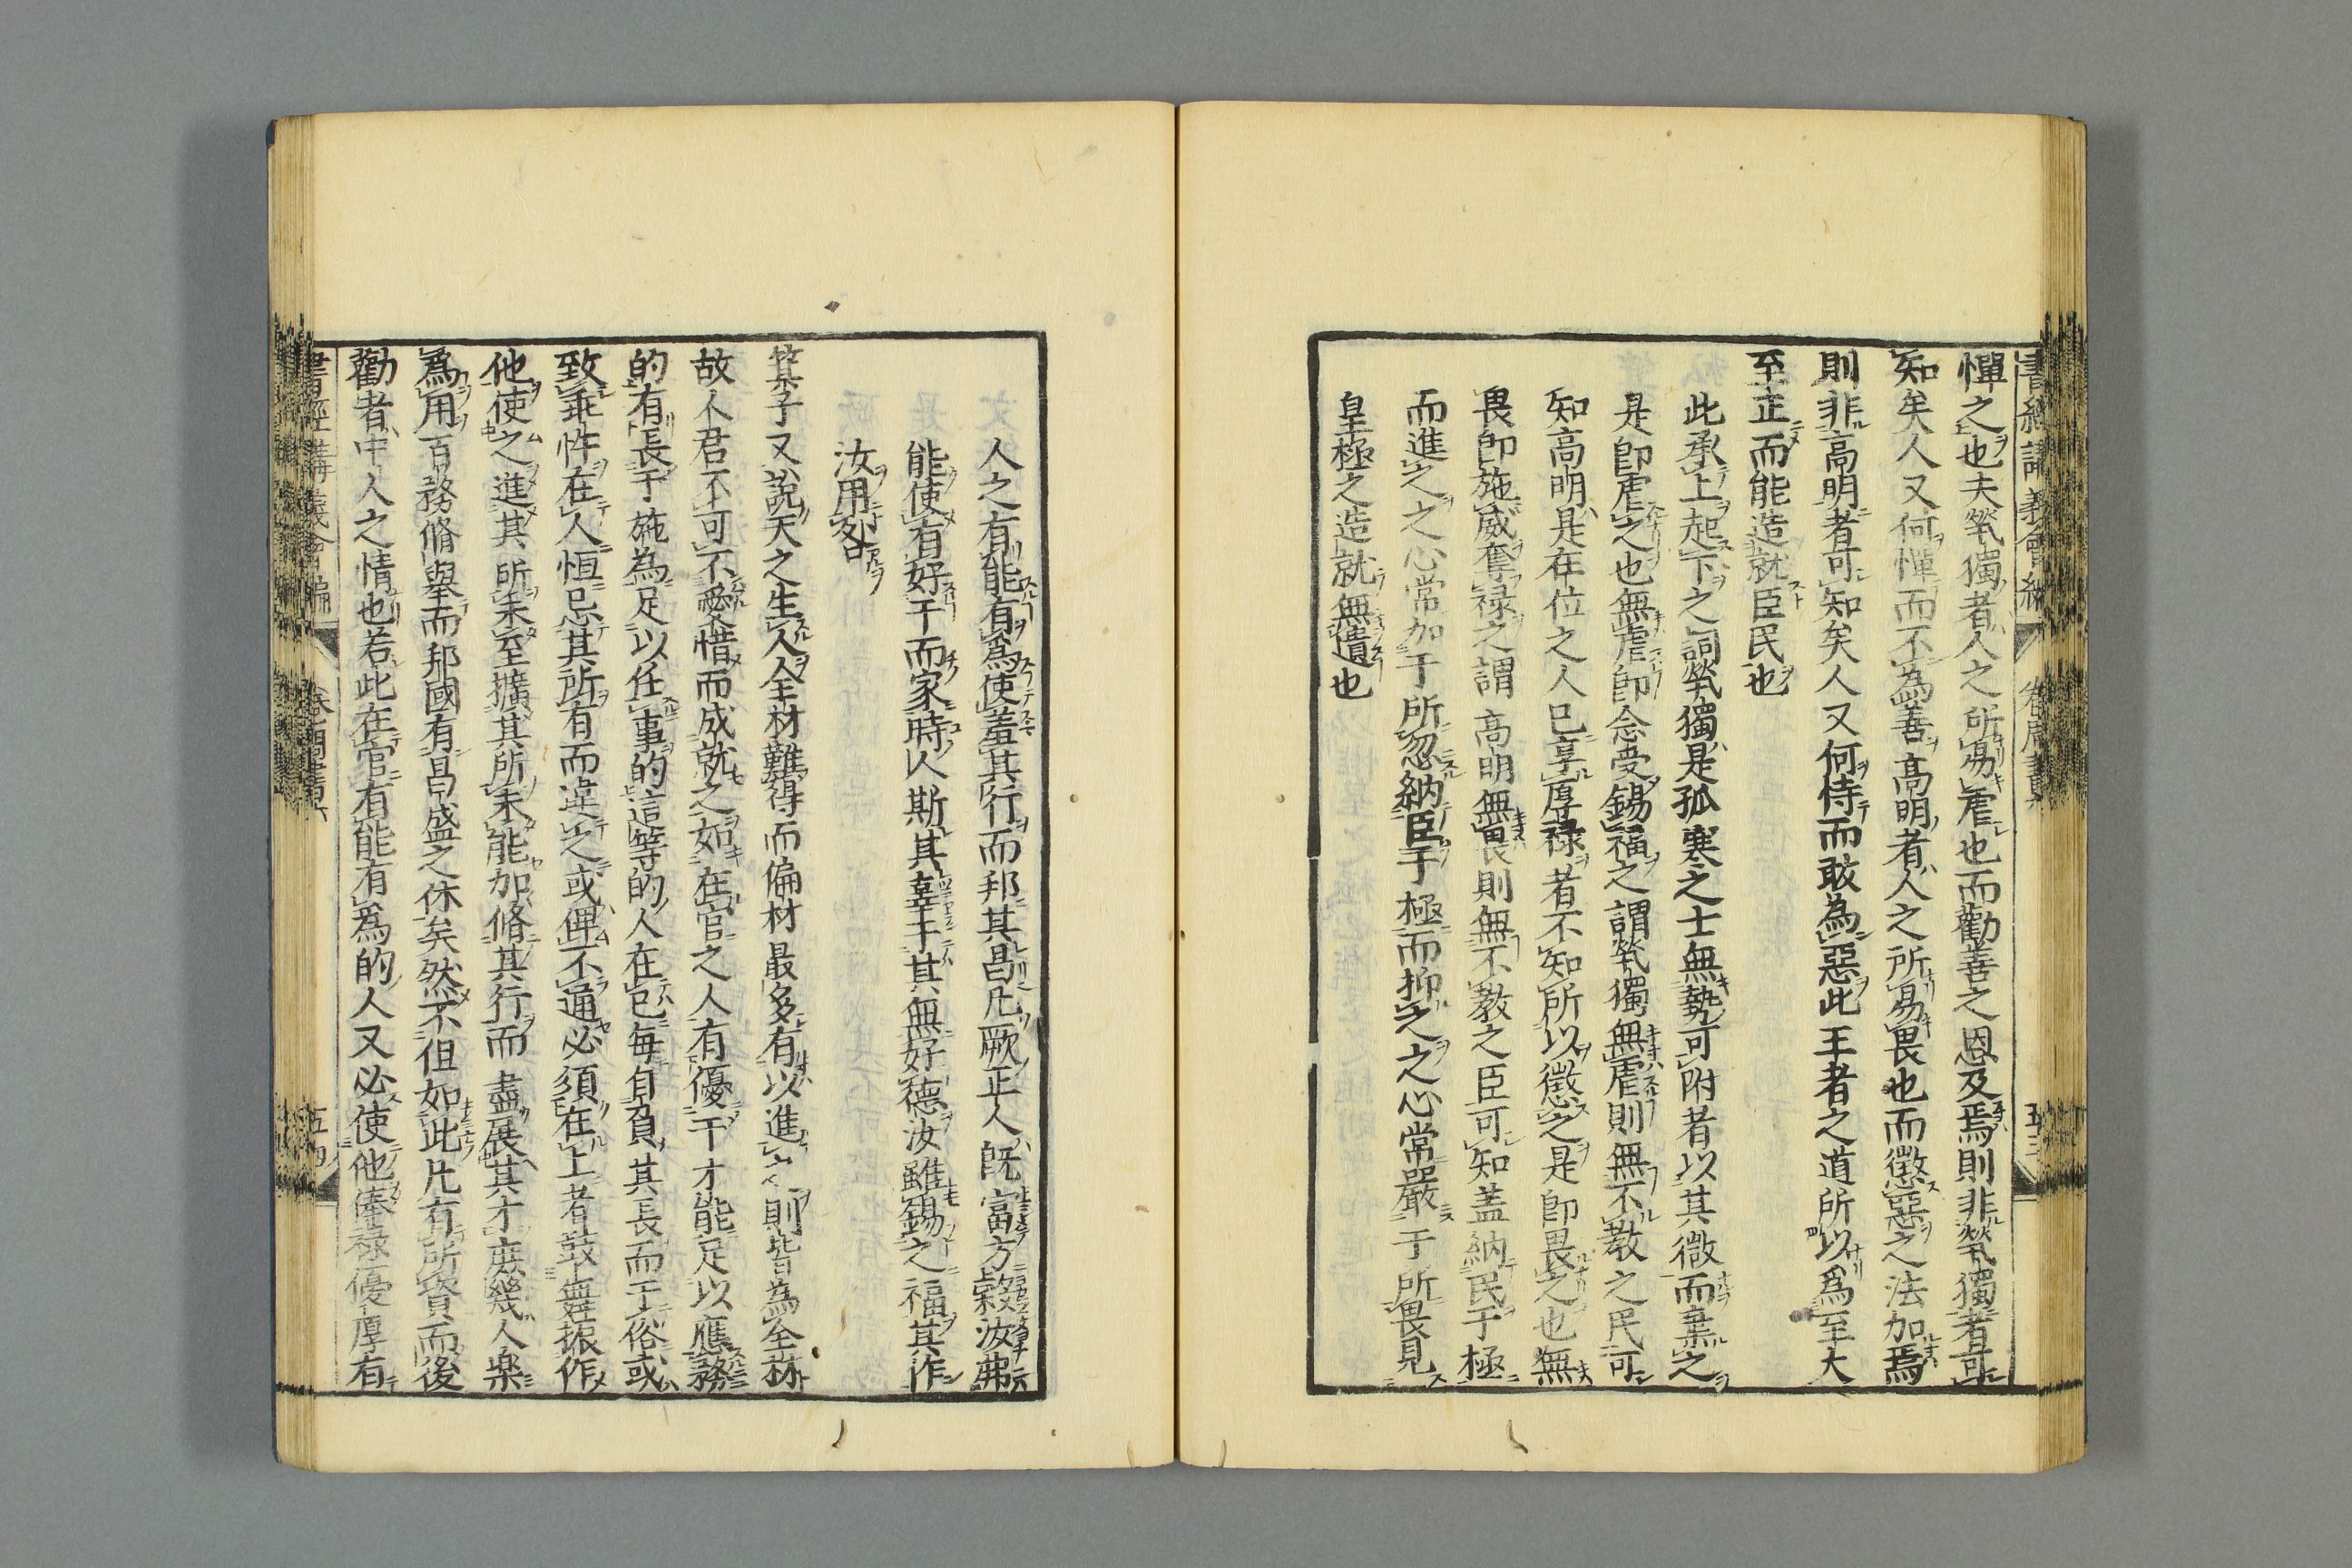 憚之也夫煢獨者人之所易虐也而勸善之恩及焉則非煢獨者可
知矣人又何憚而不為善高明者人之所易畏也而懲惡之法加焉
則非高明者可知矣人又何恃而敢為惡此王者之道所以爲至大
至正而能造就臣民也
此承上起下之詞煢獨是孤寒之士無勢可附者以其微而棄之
是卽虐之也無虐卽念受錫福之謂煢獨無虐則無不教之民可
知高明是在位之人已享厚祿者不知所以懲之是卽畏之也無
畏卽施威奪祿之謂高明無畏則無不教之臣可知蓋納民于極
而進之之心常加于所忽納臣于極而抑之之心常嚴于所畏見
皇極之造就無遺也
人之有能有爲使羞其行而邦其昌凡厥正人旣富方穀汝弗
能使有好于而家時人斯其辜于其無好德汝雖錫之福其作
汝用咎
箕子又說天之生人全材難得而偏材最多有以進之則皆為全材
故人君不可不愛惜而成就之如在官之人有優于才能足以應務
的有長于施為足以任事的這等的人在已每自負其長而于俗或
致乖忤在人恒忌其所有而違之或俾不通必須在上者鼓舞振作
他使之進其所未至擴其所未能加脩其行而盡展其才庶幾人樂
爲用百務脩舉而邦國有昌盛之休矣然不但如此凡有所資而後
勸者中人之情也若此在官有能有爲的人又必使他俸祿優厚有